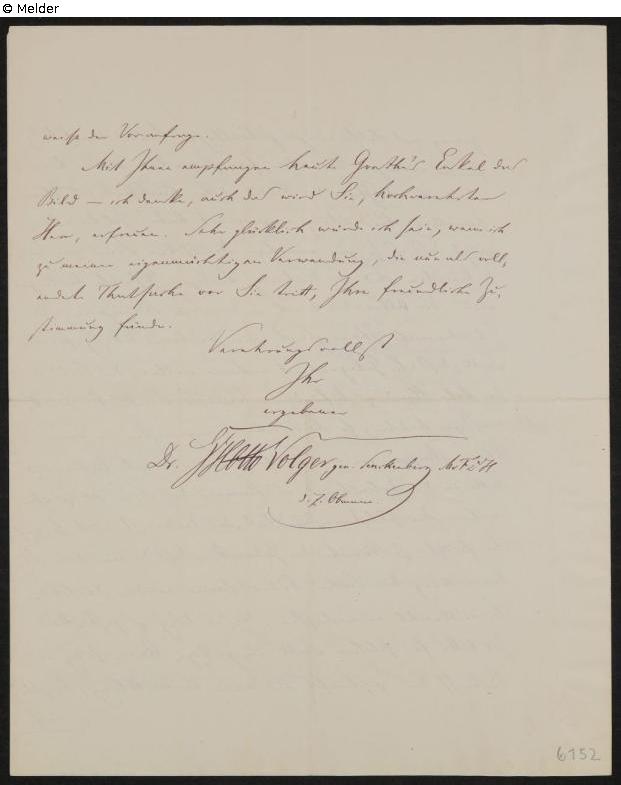 © Melder
weise der Voranfrage.
Mit Ihnen empfangen heute Goethe's Enkel das
Bild – ich denke, auch das wird Sie, hochverehrter
Herr, erfreuen. Sehr glücklich würde ich sein, wenn ich
zu meiner eigenmächtigen Verwendung, die nun als voll,
endete Thatsache vor Sie tritt, Ihre freundliche Zu,
stimmung fände.
Verehrungsvollst
Ihr
ergebener
Dr. GHOtto Volger gen. Senckenberg
d. Z. Obmann
6152